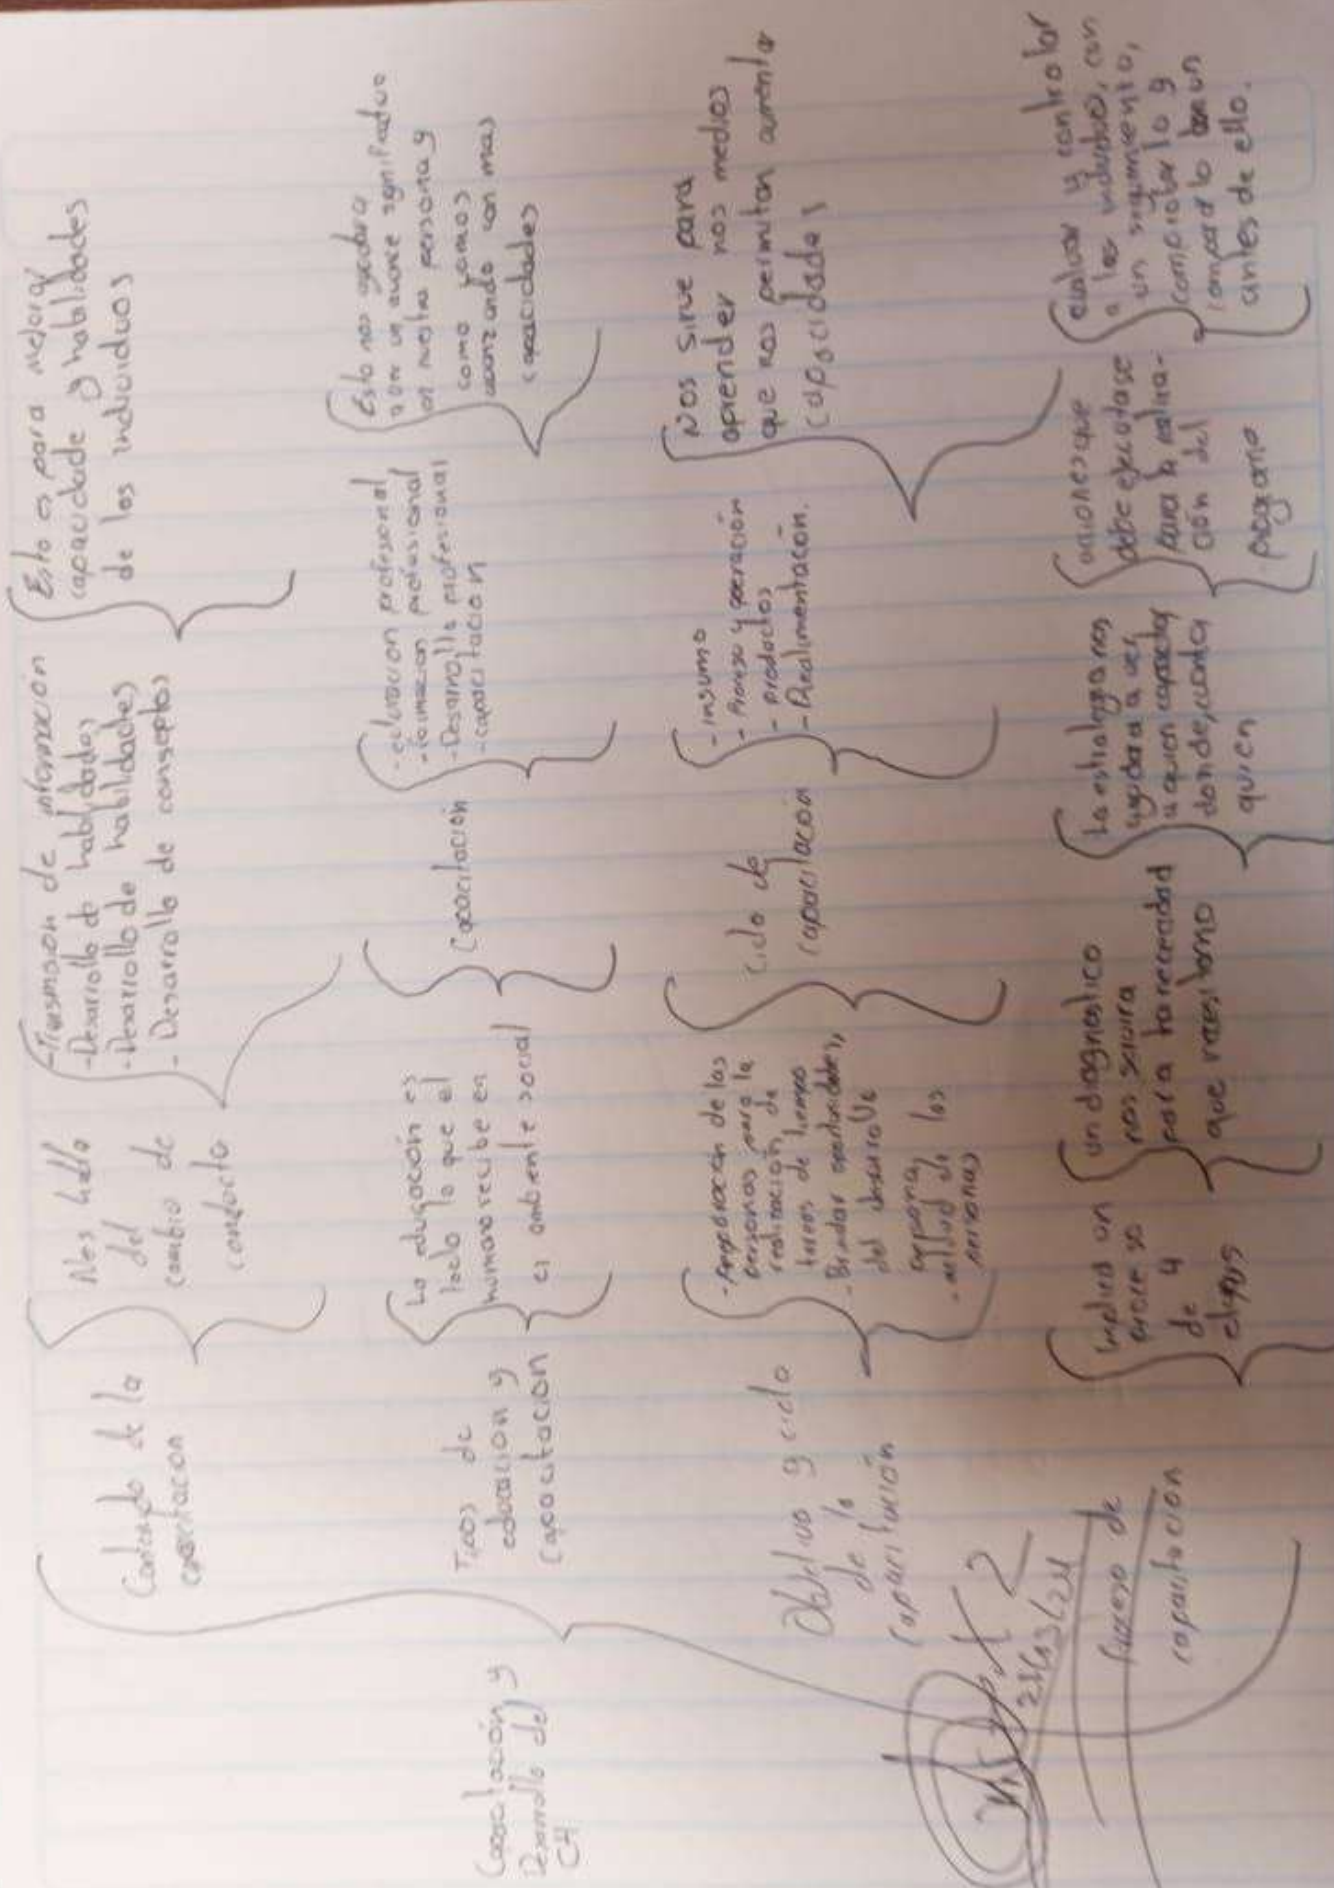 Capacitación y
Desarrollo del
CH
Contenido de la
capacitacon
Nos habla
del
cambio de
conducta
-Trasmision de informacion
-Desarrollo de habilidades
-Desarrollo de habilidades
- Desarrollo de conseptos
Esto es para mejorar
capacidade y habilidades
de los individuos
Tipos de
educacion y
Capacitacion
La edugacción es
todo lo que el
humano recibe en
el ambiente social
Capacitación
-educacion profesional
-formacion profesional
-Desarrollo profesional
-capacitacion
Esto nos ayudara
a ver un avance significativo
en nuestra persona y
como vamos
avanzando con mas
capacidades
Objetivo y ciclo
de la
Capacitación
personas para la
realización de
- Brindar oportunidades,
del desarrollo
personal
- actitud de las
personas
Ciclo de
capacitación
- insumo
- Proceso y operación
- productos
- Realimentación.
Nos sirve para
aprender nos medios
que nos permitan aumentar
capacidades
2
Proceso de
capacitacion
Implica un
proceso
de 4
etapas
un diagnostico
nos servira
para la necesidad
que necesitamo
la estrategia nos
ayudara a ver
a quien capacitar
donde, cuanto y
quien
aciones que
debe ejecutarse
para la realiza-
ción del
programa
evaluar y controlar
a los individuos, con
un seguimiento,
compararlo con un
antes de ello.